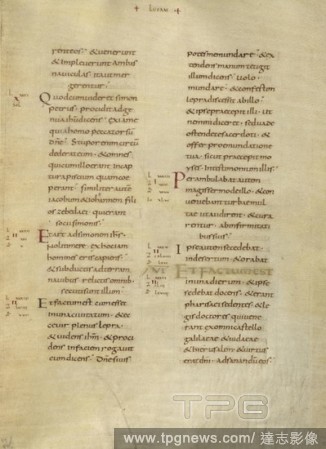 LUCAM
& uenerunt
& impleuerunt ambas
nauiculas ita ut mer
gerentur
Quod cum uider& simon
petrus · procidit ad ge
nua ihu dicens exi a me
quia homo peccator su
dne · Stupor enim circu
dederat eum & omnes
qui cum illo erant in cap
tura piscium quam ce
perant · similiter autem
iacobum & iohannem filii
os zebedei · qui erant
socii simonis ·
Et ait ad simonem ihs
noli timere · ex hoc iam
homines eris capiens
& subductis ad terram
nauibus · relictis omnib;
secuti sunt illum
Et factum est cum ess&
in una ciuitatum · & ec
ce uir plenus lepra ·
& uidens ihm · & proci
dens in faciem rogauit
eum dicens · Dne si uis
potes me mundare · & ex
tendens manum tetigit
illum dicens · uolo
mundare · & confestim
lepra discessit ab illo ·
& ipse praecepit illi · ut
nemini dicer& · sed uade
ostende te sacerdoti · &
offer pro emundatione
tua · sicut praecepit mo
yses · In testimonium illis
Perambulabat autem
magis sermo de illo · & con
ueniebant turbae mul
tae ut audirent · & cura
rentur · ab infirmitatib
suis
Ipse autem secedebat
in desertum · & orabat
Et factum est
in una dierum · & ipse
sedebat docens · & erant
pharisaei sedentes · & le
gis doctores qui uene
rant ex omni castello
galilaeae · & iudaeae
& hierusalem · & uirtus
erat dni · ad sanandu eos
TPG
www.tpgnews.com/達志影像